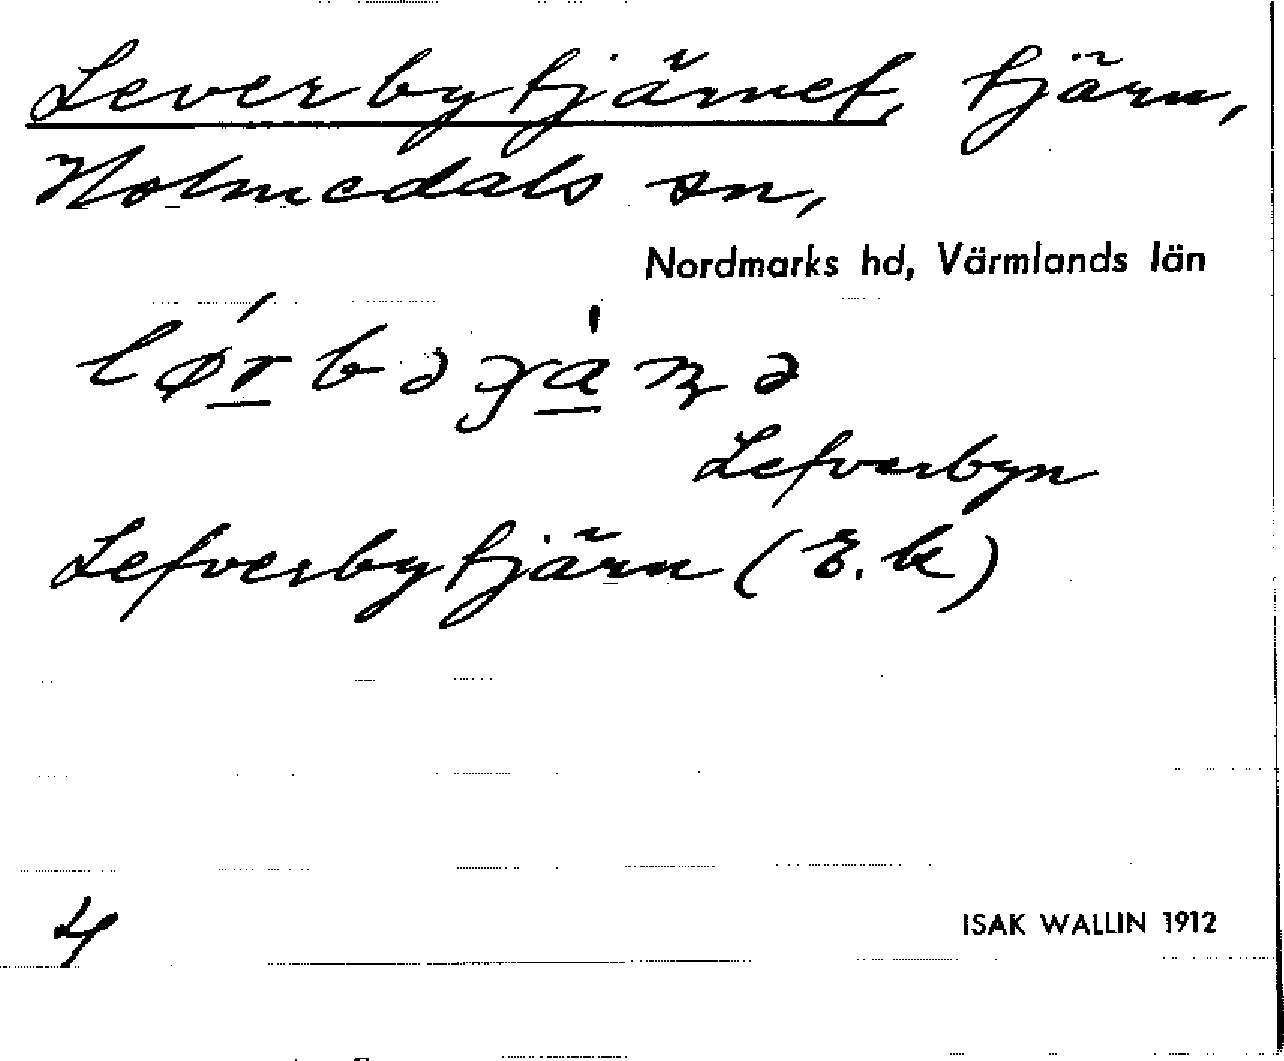 Leverbytjärnet, tjärn,
Holmedals sn,
Nordmarks hd, Värmlands län
Lefverbyn
Lefverbytjärn (E.k)
4
ISAK WALLIN 1912